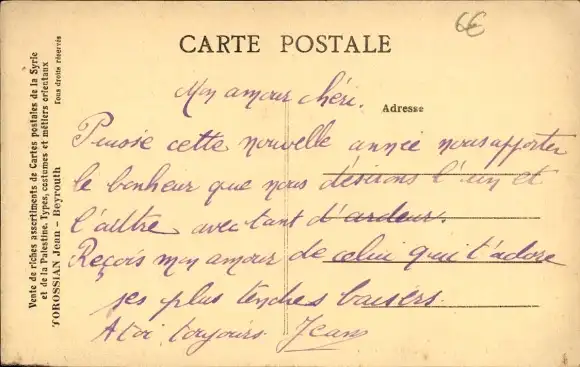 6€
CARTE POSTALE
Mon amour chéri.
Adresse
Puisse cette nouvelle année nous apporter
le bonheur que nous désirons l'un et
l'autre avec tant d'ardeur.
Reçois mon amour de celui qui t'adore
ses plus tendres baisers.
A toi toujours Jean
Vente de riches assortiments de Cartes postales de la Syrie
et de la Palestine. Types, costumes et métiers orientaux
TOROSSIAN Jean - Beyrouth
Tous droits réservés